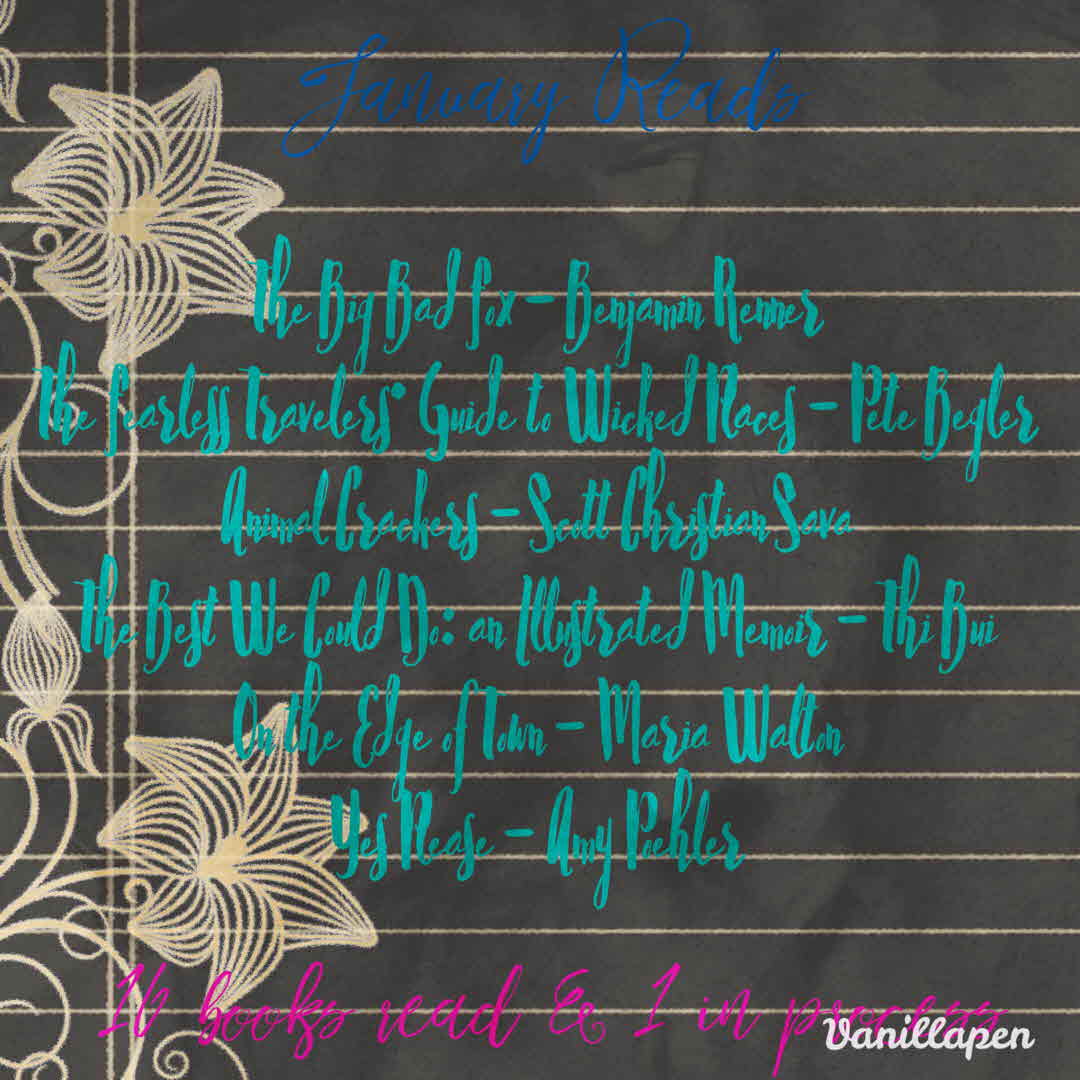 January Reads
The Big Bad Fox - Benjamin Renner
The Fearless Travelers' Guide to Wicked Places - Pete Begler
Animal Crackers - Scott Christian Sava
The Best We Could Do: an Illustrated Memoir - Thi Bui
On the Edge of Town - Maria Walton
Yes Please - Amy Poehler
16 books read & 1 in process
Vanillapen